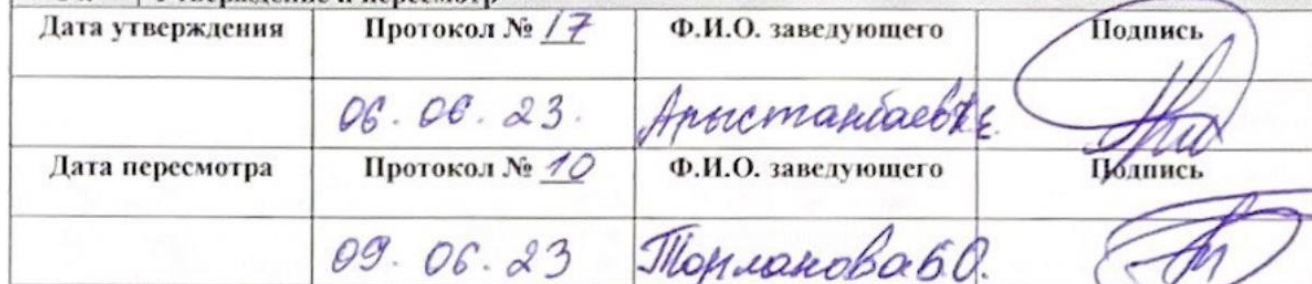 Утверждение и пересмотр
Дата утверждения Протокол № 17 Ф.И.О. заведующего Подпись
06.06.23. Арыстанбаев К.Е.
Дата пересмотра Протокол № 10 Ф.И.О. заведующего Подпись
09.06.23 Торланова Б.О.